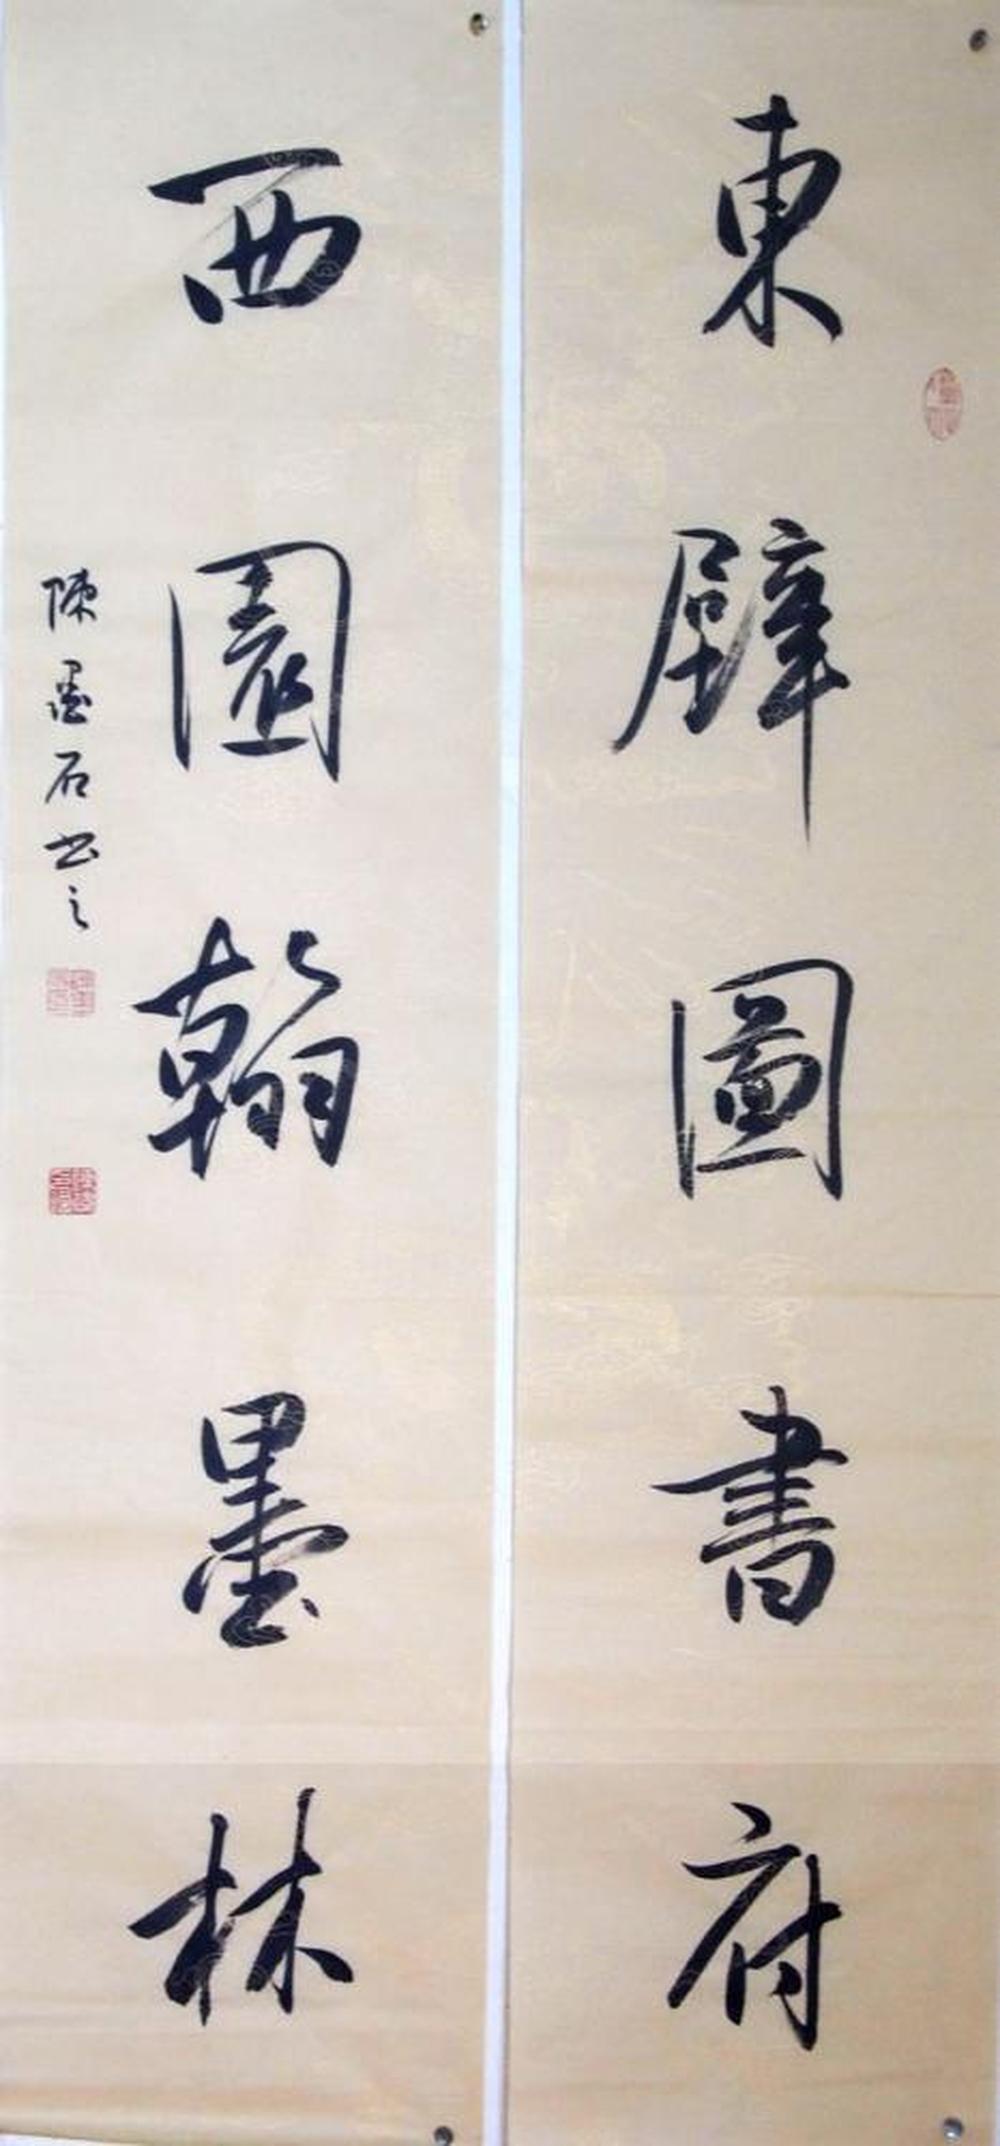 東壁圖書府
西園翰墨林
陳墨石书之